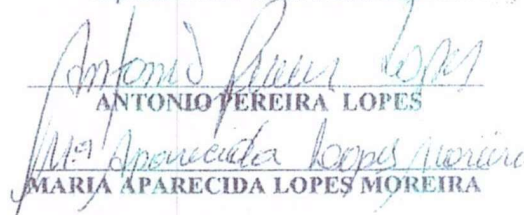 Antonio Pereira Lopes
ANTONIO PEREIRA LOPES
Mª Aparecida Lopes Moreira
MARIA APARECIDA LOPES MOREIRA